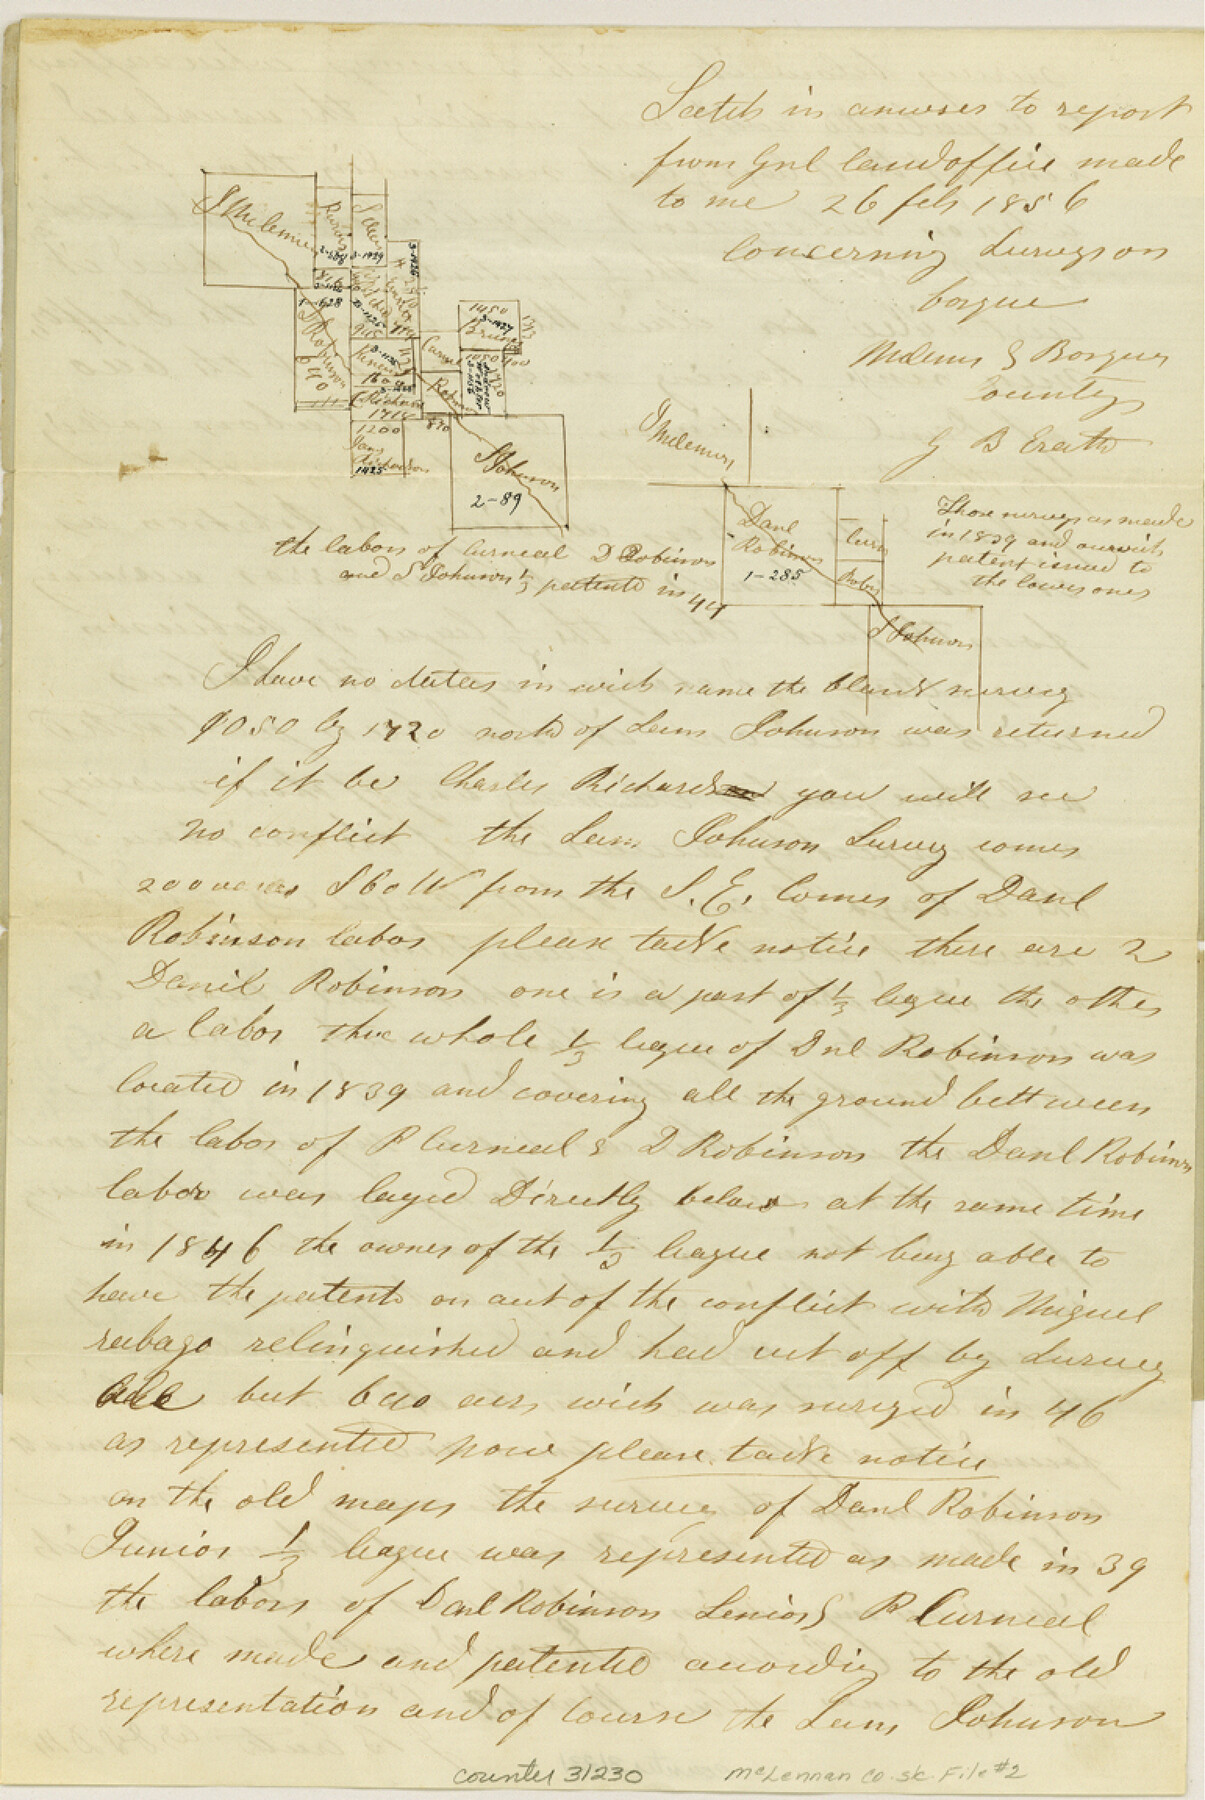 Scetch in answer to report
from Gnl landoffice made
to me 26 feb 1856
Concerning Surveys on
bosque
Mclenn & Bosque
County
G B Erath
J Mclennan
2-588
3-1429
3-1426
1-628
S Robinson
640
945
1600
C Richards
1716
1200
James Richardson
1425
870
Curneal
Robinson
1450
3-1427
1050
1720
S Johnson
2-89
J Mclennan
Danl
Robinson
1-285
Curn
Robin
S Johnson
Those surveys as made
in 1839 and
patent issued to
the lower ones
the labors of Curneal D Robinson
and S Johnson 1/3 patented in 44
I have no duties in wich name the blank survey
1050 by 1720 north of Sam Johnson was returned
if it be Charles Richards you will see
no conflict the Sam Johnson Survey comes
200 varas S 60 W from the S. E. Corner of Danl
Robinson labor please tacke notice there are 2
Danil Robinson one is a part of 1/3 legue the other
a labor the whole 1/3 legue of Dnl Robinson was
located in 1839 and covering all the ground bettween
the labor of P Curneal & D Robinson the Danl Robinson
labor was layed Directly below at the same time
in 1846 the owner of the 1/3 league not being able to
have the patent on act of the conflict with Miguel
rabago relinquished and had cut off by Survey
all but 640 acrs wich was surveyed in 46
as represented now please tacke notice
on the old maps the survey of Danl Robinson
Junior 1/3 league was represented as made in 39
the labors of Danl Robinson Senior & P Curneal
where made and patented acording to the old
representation and of course the Sam Johnson
counter 31230
McLennan Co. Sk. File #2